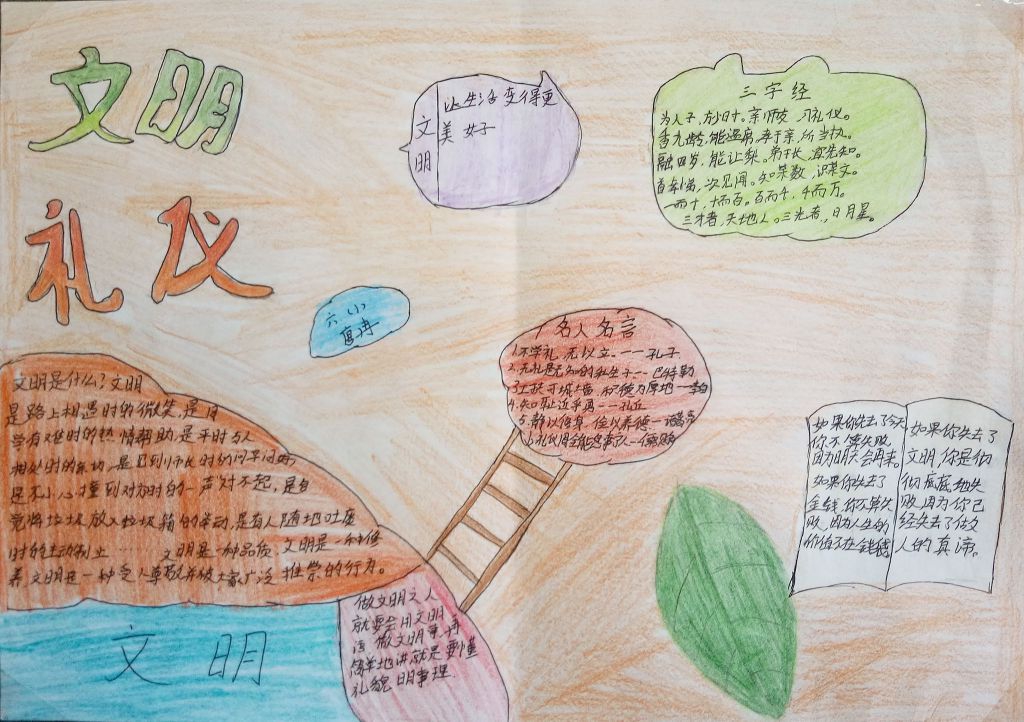 文明
礼仪
文明
让生活变得更
美好
三字经
为人子,方少时。亲师友,习礼仪。
香九龄,能温席。孝于亲,所当执。
融四岁,能让梨。弟于长,宜先知。
首孝弟,次见闻。知某数,识某文。
一而十,十而百。百而千,千而万。
三才者,天地人。三光者,日月星。
六(1)
名人名言
1.不学礼,无以立。——孔子
2.无礼是无知的私生子——巴特勒
4.知耻近乎勇——孔丘
5.静以修身,俭以养德
文明是什么?文明
是路上相遇时的微笑,是同
学有难时的热情帮助,是平时与人
相处时的亲切,是见到师长时的问早问好,
是不小心撞到对方时的一声对不起,是自
觉将垃圾放入垃圾箱的举动,是有人随地吐痰
时的主动制止…… 文明是一种品质,文明是一种修
养,文明是一种受人尊敬并被大家广泛推崇的行为。
文明
做文明之人
就要会用文明
语,做文明事,再
简单地讲就是要懂
礼貌,明事理.
如果你失去了今天
你不算失败,
因为明天会再来。
如果你失去了
金钱,你不算失
败,因为人生的
价值不在金钱
如果你失去了
文明,你是彻
彻底底的失
败,因为你已
经失去了做
人的真谛。